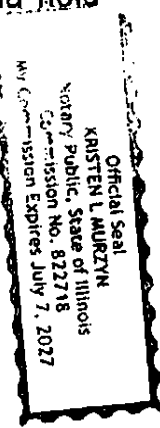 Official Seal
KRISTEN L MURZYN
Notary Public, State of Illinois
Commission No. 822718
My Commission Expires July 7, 2027